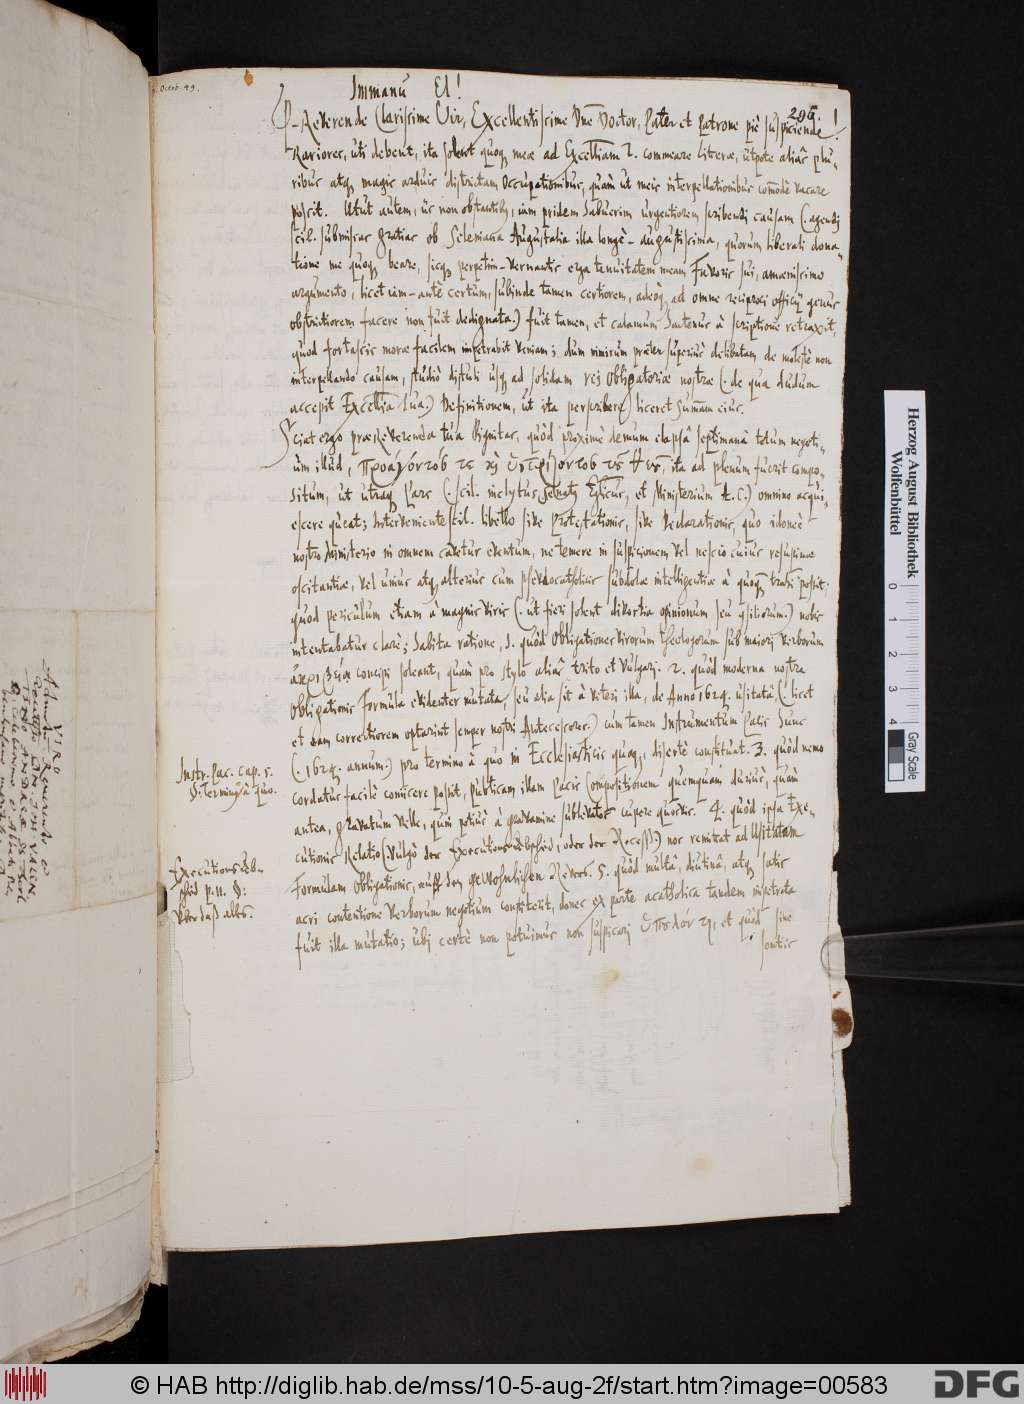 Octob. 49.
Immanu El!
295.
P-Reverende Clarissime Vir, Excellentissime Dne Doctor, Pater et Patrone piè suspiciende!
Rariores, uti debent, ita solent quoq meae ad Excelltiam T. commeare literae, utpote aliàs plu-
ribus atq magis arduis districtam occupationibus, quàm ut meis interpellationibus commodè vacare
possit. Utut autem, iis non obstantib, iam pridem habuerim urgentiorem scribendi causam (agendi
scil. submissas gratias ob Seleniana Augustalia illa longè-augustissima, quorum liberali dona-
tione me quoq beare, sicq perpetim-vernantis erga tenuitatem meam Favoris sui, amoenissimo
argumento, licet iam-antè certum, subinde tamen certiorem, adeoq ad omne reciproci officij genus
obstrictiorem facere non fuit dedignata.) fuit tamen, et calamum hactenus à scriptione retraxit,
quod fortassis morae facilem impetrabit veniam; dum nimirum praeter superiùs delibatam de molestè non
interpellando causam, studiò distuli usq ad solidam rei obligatoriae nostrae (. de qua dudum
accepit Excelltia Tua.) Definitionem, ut ita perscribere liceret summam eius.
Sciat ergo praeReverenda tua Dignitas, quòd proximè demum elapsâ septimanâ totum negoti-
um illud, ita ad plenum fuerit compo-
situm, ut utraq Pars (. scil. inclytus Senatus et Ministerium A. C.) omnino acqui-
escere queat; Interveniente scil. libello sive Protestationis, sive Declarationis, quo idoneè
nostro Ministerio in omnem cavetur eventum, ne temere in suspicionem vel nescio cuius resupinae
oscitantiae, vel unius atq alterius cum pseudocatholicis subdolae intelligentiae à quoq trahi possit;
quod periculum etiam à magnis viris (. ut fieri solent divortia opinionum seu .) nobis
intentabatur clarè; habita ratione, 1. quòd obligationes virorum theologorum sub maiori verborum
concipi soleant, quàm pro stylo aliàs trito et vulgari. 2. quòd moderna nostra
obligationis formula evidenter mutata, seu alia sit à veteri illa, de Anno 1624. usitatâ (. licet
et eam correctiorem optarint semper nostri Antecessores.) cum tamen Instrumentum Pacis hunc
(. 1624. annum.) pro termino à quo in Ecclesiasticis quoq, disertè constituat. 3. quòd nemo
cordatus facilè conijcere possit, publicam illam Pacis Compositionem quemquam duriùs, quàm
antea, gravatum velle, quin potiùs à gravamine sublevatos cupere quosvis. 4. quòd ipsa Exe-
cutionis Relatio (. vulgò der Executions-Abschid, oder der Recess.) nos remittat ad Usitatam
Formulam obligationis, auff den gewohnlichen Revers. 5. quòd multâ, diutinâ, atq satis
acri contentione verborum negotium constiterit, donec ex parte acatholica tandem impetrata
fuit illa mutatio; ubi certè non potuimus non suspicari et quid sine
sontis
Instr. Pac. cap. 5.
§. Terminus à quo.
Executions-Ab-
schid p. 11. §:
Uber daß alles.
Herzog August Bibliothek
Wolfenbüttel
0 1 2 3 4
Gray Scale
© HAB http://diglib.hab.de/mss/10-5-aug-2f/start.htm?image=00583
DFG